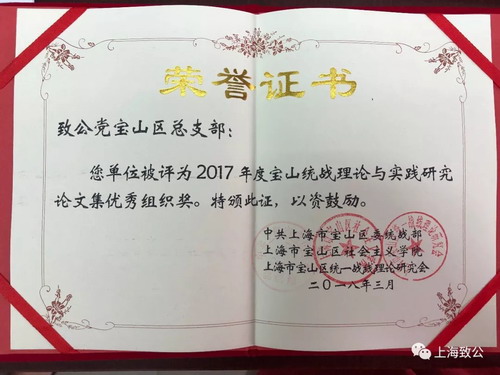 荣誉证书
致公党宝山区总支部：
您单位被评为2017年度宝山统战理论与实践研究
论文集优秀组织奖。特颁此证，以资鼓励。
中共上海市宝山区委统战部
上海市宝山区社会主义学院
上海市宝山区统一战线理论研究会
二〇一八年三月
上海致公